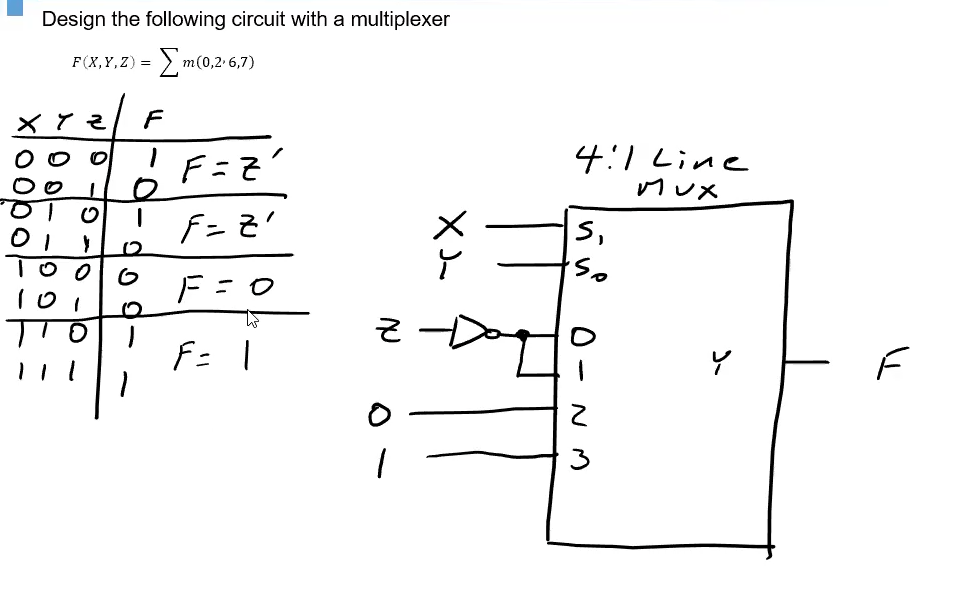 Design the following circuit with a multiplexer
F(X,Y,Z) = ∑ m(0,2,6,7)
X Y Z F
0 0 0 1
0 0 1 0
F = Z'
0 1 0 1
0 1 1 0
F = Z'
1 0 0 0
1 0 1 0
F = 0
1 1 0 1
1 1 1 1
F = 1
4:1 Line
MUX
X S1
Y S0
Z 0
1
0 2
1 3
Y F